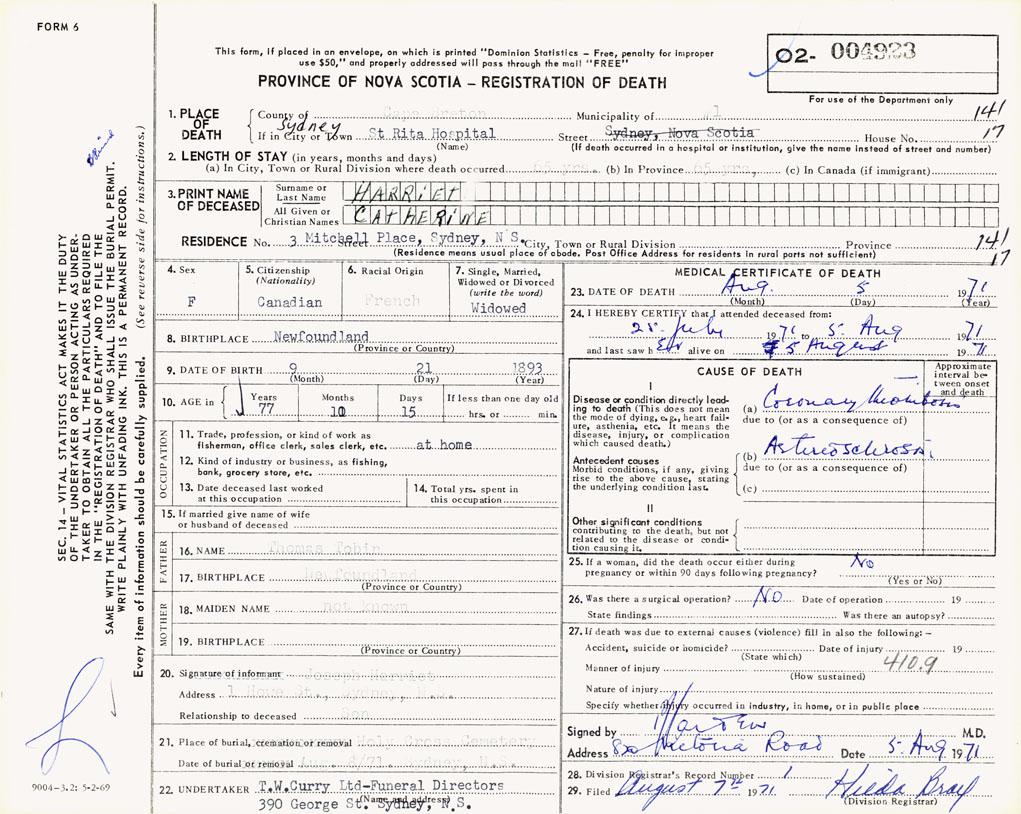 FORM 6
This form, if placed in an envelope, on which is printed "Dominion Statistics – Free, penalty for improper
use $50," and properly addressed will pass through the mail "FREE"
PROVINCE OF NOVA SCOTIA – REGISTRATION OF DEATH
02- 004923
For use of the Department only
SEC. 14 – VITAL STATISTICS ACT MAKES IT THE DUTY
OF THE UNDERTAKER OR PERSON ACTING AS UNDER-
TAKER TO OBTAIN ALL THE PARTICULARS REQUIRED
IN THE "REGISTRATION OF DEATH" AND TO FILE THE
SAME WITH THE DIVISION REGISTRAR WHO SHALL ISSUE THE BURIAL PERMIT.
WRITE PLAINLY WITH UNFADING INK. THIS IS A PERMANENT RECORD.
Every item of information should be carefully supplied. (See reverse side for instructions.)
1. PLACE OF DEATH
County of Cape Breton Municipality of #1 141
If in City or Town Sydney St Rita Hospital Street Sydney, Nova Scotia House No. 17
(Name) (If death occurred in a hospital or institution, give the name instead of street and number)
2. LENGTH OF STAY (in years, months and days)
(a) In City, Town or Rural Division where death occurred 65 yrs. (b) In Province 65 yrs. (c) In Canada (if immigrant)
3. PRINT NAME OF DECEASED
Surname or Last Name HARRIET
All Given or Christian Names CATHERINE
RESIDENCE No. 3 Mitchell Place, Sydney, N S. Street City, Town or Rural Division Province 141
(Residence means usual place of abode. Post Office Address for residents in rural parts not sufficient) 17
4. Sex
F
5. Citizenship
(Nationality)
Canadian
6. Racial Origin
French
7. Single, Married,
Widowed or Divorced
(write the word)
Widowed
8. BIRTHPLACE Newfoundland
(Province or Country)
9. DATE OF BIRTH 9 21 1893
(Month) (Day) (Year)
10. AGE in Years Months Days If less than one day old
77 10 15 hrs. or min.
OCCUPATION
11. Trade, profession, or kind of work as
fisherman, office clerk, sales clerk, etc. at home
12. Kind of industry or business, as fishing,
bank, grocery store, etc.
13. Date deceased last worked
at this occupation
14. Total yrs. spent in
this occupation
15. If married give name of wife
or husband of deceased
FATHER
16. NAME Thomas Tobin
17. BIRTHPLACE Newfoundland
(Province or Country)
MOTHER
18. MAIDEN NAME not known
19. BIRTHPLACE
(Province or Country)
20. Signature of informant Joseph Harriet
Address 1 Howe St., Sydney, N.S.
Relationship to deceased Son
21. Place of burial, cremation or removal Holy Cemetery
Date of burial or removal /71 Sydney, N.S.
22. UNDERTAKER T.W.Curry Ltd-Funeral Directors
(Name and address)
390 George St. Sydney, N.S.
9004-3.2: 5-2-69
MEDICAL CERTIFICATE OF DEATH
23. DATE OF DEATH Aug. 5 1971
(Month) (Day) (Year)
24. I HEREBY CERTIFY that I attended deceased from:
25 July 1971 to 5 Aug 1971
and last saw her alive on 5 August 1971
CAUSE OF DEATH
Approximate
interval be-
tween onset
and death
I
Disease or condition directly lead-
ing to death (This does not mean
the mode of dying, e.g., heart fail-
ure, asthenia, etc. It means the
disease, injury, or complication
which caused death.)
(a) Coronary Thrombosis
due to (or as a consequence of)
Antecedent causes
Morbid conditions, if any, giving
rise to the above cause, stating
the underlying condition last.
(b) Asterioschrosis.
due to (or as a consequence of)
(c)
II
Other significant conditions
contributing to the death, but not
related to the disease or condi-
tion causing it.
25. If a woman, did the death occur either during
pregnancy or within 90 days following pregnancy? No
(Yes or No)
26. Was there a surgical operation? NO Date of operation 19
State findings Was there an autopsy?
27. If death was due to external causes (violence) fill in also the following: –
Accident, suicide or homicide? Date of injury 19
(State which)
Manner of injury 410.9
(How sustained)
Nature of injury
Specify whether injury occurred in industry, in home, or in public place
Signed by M.D.
Address Victoria Road Date 5 Aug 1971
28. Division Registrar's Record Number 1
29. Filed August 7th 1971 Hilda Bray
(Division Registrar)